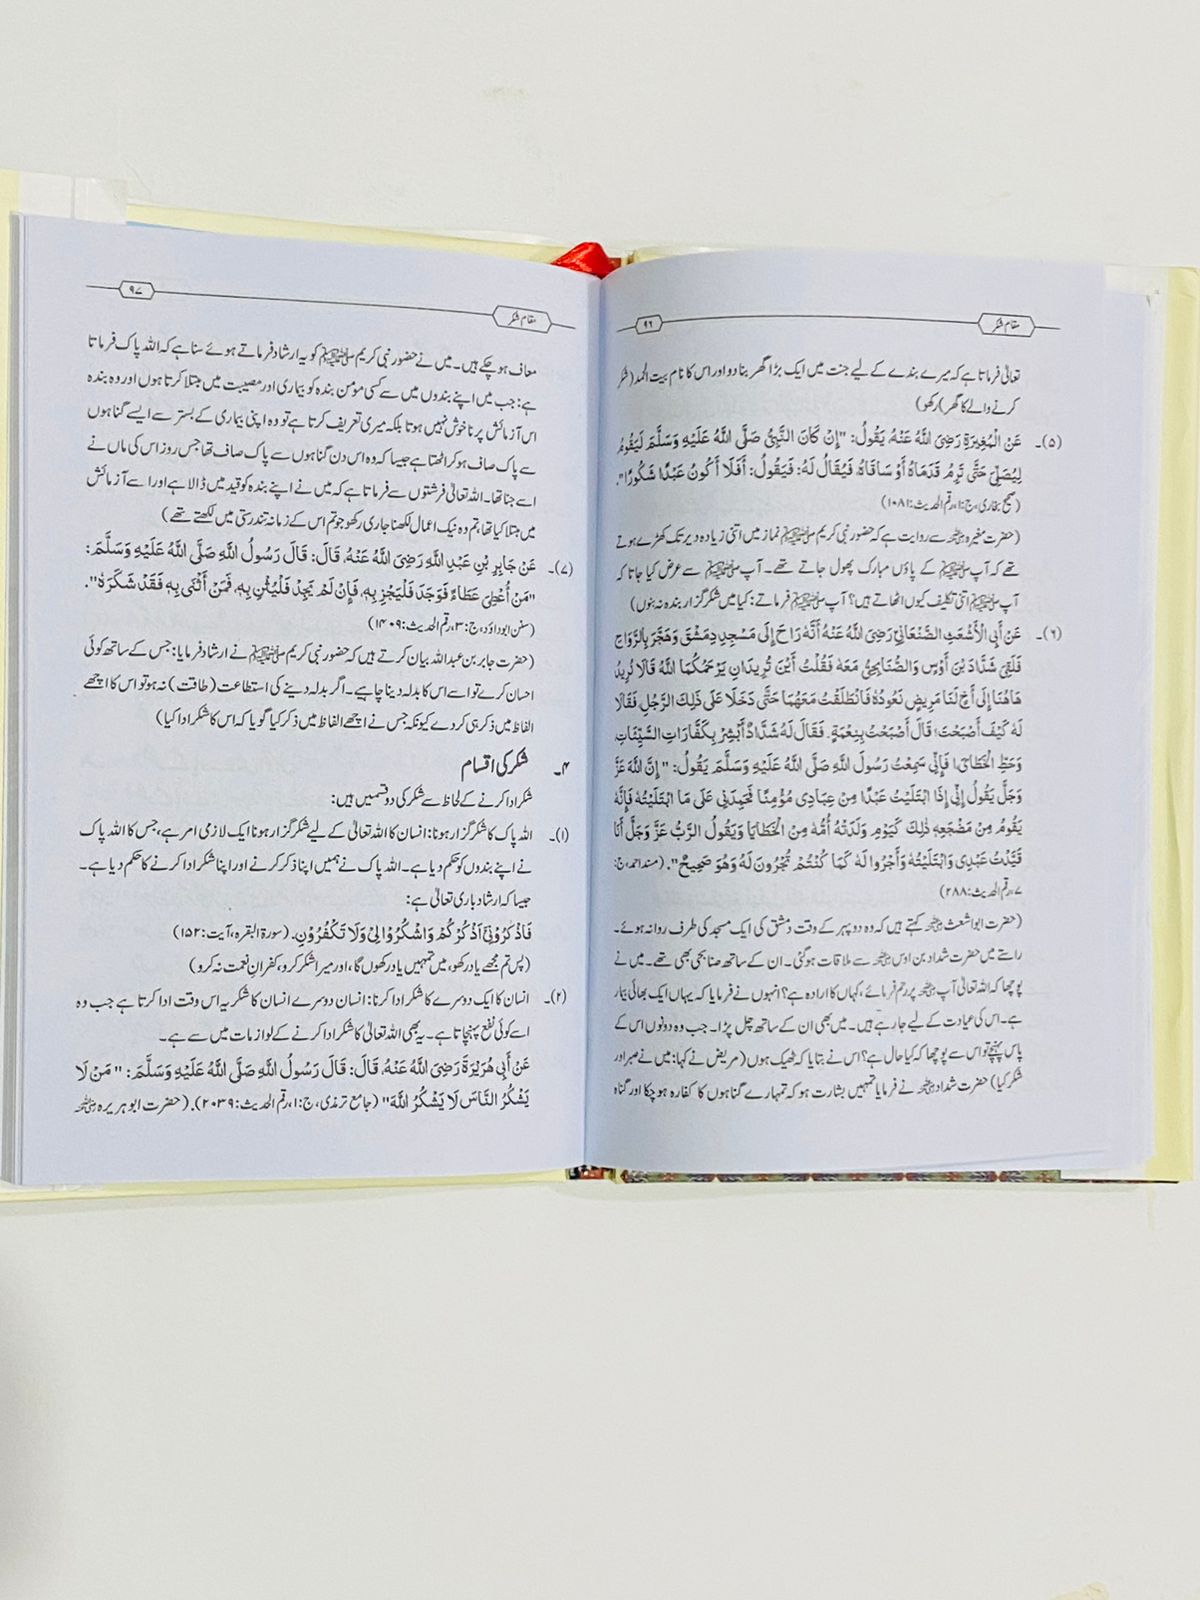 مقام شکر
۹۶
تعالیٰ فرماتا ہے کہ میرے بندے کے لیے جنت میں ایک بڑا گھر بنا دو اور اس کا نام بیت الحمد (شکر
کرنے والے کا گھر) رکھو)
(۵)۔ عَنِ الْمُغِيرَةِ رَضِيَ اللّٰهُ عَنْهُ، يَقُولُ: "إِنْ كَانَ النَّبِيُّ صَلَّى اللّٰهُ عَلَيْهِ وَسَلَّمَ لَيَقُومُ
لِيُصَلِّيَ حَتَّى تَرِمُ قَدَمَاهُ أَوْ سَاقَاهُ فَيُقَالُ لَهُ: فَيَقُولُ: أَفَلَا أَكُونُ عَبْدًا شَكُورًا".
(صحیح بخاری، ج:۱، رقم الحدیث:۱۰۸۱)
(حضرت مغیرہ رضی اللہ عنہ سے روایت ہے کہ حضور نبی کریم صلی اللہ علیہ وسلم نماز میں اتنی زیادہ دیر تک کھڑے ہوتے
تھے کہ آپ صلی اللہ علیہ وسلم کے پاؤں مبارک پھول جاتے تھے۔ آپ صلی اللہ علیہ وسلم سے عرض کیا جاتا کہ
آپ صلی اللہ علیہ وسلم اتنی تکلیف کیوں اٹھاتے ہیں؟ آپ فرماتے: کیا میں شکر گزار بندہ نہ بنوں)
(۶)۔ عَنْ أَبِي الْأَشْعَثِ الصَّنْعَانِيِّ رَضِيَ اللّٰهُ عَنْهُ أَنَّهُ رَاحَ إِلَى مَسْجِدِ دِمَشْقَ وَهَجَّرَ بِالرَّوَاحِ
فَلَقِيَ شَدَّادَ بْنَ أَوْسٍ وَالصُّنَابِحِيُّ مَعَهُ فَقُلْتُ أَيْنَ تُرِيدَانِ يَرْحَمُكُمَا اللّٰهُ قَالَا نُرِيدُ
هَاهُنَا إِلَى أَخٍ لَنَا مَرِيضٍ نَعُودُهُ فَانْطَلَقْتُ مَعَهُمَا حَتَّى دَخَلَا عَلَى ذَلِكَ الرَّجُلِ فَقَالَا
لَهُ كَيْفَ أَصْبَحْتَ؟ قَالَ أَصْبَحْتُ بِنِعْمَةٍ. فَقَالَ لَهُ شَدَّادٌ أَبْشِرْ بِكَفَّارَاتِ السَّيِّئَاتِ
وَحَطِّ الْخَطَايَا، فَإِنِّي سَمِعْتُ رَسُولَ اللّٰهِ صَلَّى اللّٰهُ عَلَيْهِ وَسَلَّمَ يَقُولُ: "إِنَّ اللّٰهَ عَزَّ
وَجَلَّ يَقُولُ إِنِّي إِذَا ابْتَلَيْتُ عَبْدًا مِنْ عِبَادِي مُؤْمِنًا فَحَمِدَنِي عَلَى مَا ابْتَلَيْتُهُ فَإِنَّهُ
يَقُومُ مِنْ مَضْجَعِهِ ذٰلِكَ كَيَوْمِ وَلَدَتْهُ أُمُّهُ مِنَ الْخَطَايَا وَيَقُولُ الرَّبُّ عَزَّ وَجَلَّ أَنَا
قَيَّدْتُ عَبْدِي وَابْتَلَيْتُهُ وَأَجْرُوا لَهُ كَمَا كُنْتُمْ تُجْرُونَ لَهُ وَهُوَ صَحِيحٌ". (مسند احمد، ج:
۷، رقم الحدیث:۲۸۸)
(حضرت ابواشعث رضی اللہ عنہ کہتے ہیں کہ وہ دوپہر کے وقت دمشق کی ایک مسجد کی طرف روانہ ہوئے۔
راستے میں حضرت شداد بن اوس رضی اللہ عنہ سے ملاقات ہوگئی۔ ان کے ساتھ صنابحی بھی تھے۔ میں نے
پوچھا کہ اللہ تعالیٰ آپ پر رحم فرمائے، کہاں کا ارادہ ہے؟ انہوں نے فرمایا کہ یہاں ایک بھائی بیمار
ہے۔ اس کی عیادت کے لیے جا رہے ہیں۔ میں بھی ان کے ساتھ چل پڑا۔ جب وہ دونوں اس کے
پاس پہنچے تو اس سے پوچھا کہ کیا حال ہے؟ اس نے بتایا کہ ٹھیک ہوں (مریض نے کہا: میں نے صبر اور
شکر کیا) حضرت شداد رضی اللہ عنہ نے فرمایا تمہیں بشارت ہو کہ تمہارے گناہوں کا کفارہ ہو چکا اور گناہ
مقام شکر
۹۷
معاف ہو چکے ہیں۔ میں نے حضور نبی کریم صلی اللہ علیہ وسلم کو یہ ارشاد فرماتے ہوئے سنا ہے کہ اللہ پاک فرماتا
ہے: جب میں اپنے بندوں میں سے کسی مؤمن بندہ کو بیماری اور مصیبت میں مبتلا کرتا ہوں اور وہ بندہ
اس آزمائش پر ناخوش نہیں ہوتا بلکہ میری تعریف کرتا ہے تو وہ اپنی بیماری کے بستر سے ایسے گناہوں
سے پاک صاف ہو کر اٹھتا ہے جیسا کہ وہ اس دن گناہوں سے پاک صاف تھا جس روز اس کی ماں نے
اسے جنا تھا۔ اللہ تعالیٰ فرشتوں سے فرماتا ہے کہ میں نے اپنے بندہ کو قید میں ڈالا ہے اور اسے آزمائش
میں مبتلا کیا تھا، تم وہ نیک اعمال لکھنا جاری رکھو جو تم اس کے زمانہ تندرستی میں لکھتے تھے)
(۷)۔ عَنْ جَابِرِ بْنِ عَبْدِ اللّٰهِ رَضِيَ اللّٰهُ عَنْهُ، قَالَ: قَالَ رَسُولُ اللّٰهِ صَلَّى اللّٰهُ عَلَيْهِ وَسَلَّمَ:
"مَنْ أُعْطِيَ عَطَاءً فَوَجَدَ فَلْيَجْزِ بِهِ، فَإِنْ لَمْ يَجِدْ فَلْيُثْنِ بِهِ، فَمَنْ أَثْنَى بِهِ فَقَدْ شَكَرَهُ".
(سنن ابوداؤد، ج:۳، رقم الحدیث:۱۴۰۹)
(حضرت جابر بن عبداللہ بیان کرتے ہیں کہ حضور نبی کریم صلی اللہ علیہ وسلم نے ارشاد فرمایا: جس کے ساتھ کوئی
احسان کرے تو اسے اس کا بدلہ دینا چاہیے۔ اگر بدلہ دینے کی استطاعت (طاقت) نہ ہو تو اس کا اچھے
الفاظ میں ذکر ہی کر دے کیونکہ جس نے اچھے الفاظ میں ذکر کیا گویا کہ اس کا شکر ادا کیا)
۴۔ شکر کی اقسام
شکر ادا کرنے کے لحاظ سے شکر کی دو قسمیں ہیں:
(۱)۔ اللہ پاک کا شکر گزار ہونا: انسان کا اللہ تعالیٰ کے لیے شکر گزار ہونا ایک لازمی امر ہے، جس کا اللہ پاک
نے اپنے بندوں کو حکم دیا ہے۔ اللہ پاک نے ہمیں اپنا ذکر کرنے اور اپنا شکر ادا کرنے کا حکم دیا ہے۔
جیسا کہ ارشاد باری تعالیٰ ہے:
فَاذْكُرُوْنِيْٓ اَذْكُرْكُمْ وَاشْكُرُوْا لِيْ وَلَا تَكْفُرُوْنِ. (سورۃ البقرہ، آیت:۱۵۲)
(پس تم مجھے یاد رکھو، میں تمہیں یاد رکھوں گا، اور میرا شکر کرو، کفرانِ نعمت نہ کرو)
(۲)۔ انسان کا ایک دوسرے کا شکر ادا کرنا: انسان دوسرے انسان کا شکریہ اس وقت ادا کرتا ہے جب وہ
اسے کوئی نفع پہنچاتا ہے۔ یہ بھی اللہ تعالیٰ کا شکر ادا کرنے کے لوازمات میں سے ہے۔
عَنْ أَبِي هُرَيْرَةَ رَضِيَ اللّٰهُ عَنْهُ، قَالَ: قَالَ رَسُولُ اللّٰهِ صَلَّى اللّٰهُ عَلَيْهِ وَسَلَّمَ: "مَنْ لَا
يَشْكُرُ النَّاسَ لَا يَشْكُرُ اللّٰهَ" (جامع ترمذی، ج:۱، رقم الحدیث:۲۰۳۹). (حضرت ابوہریرہ رضی اللہ عنہ